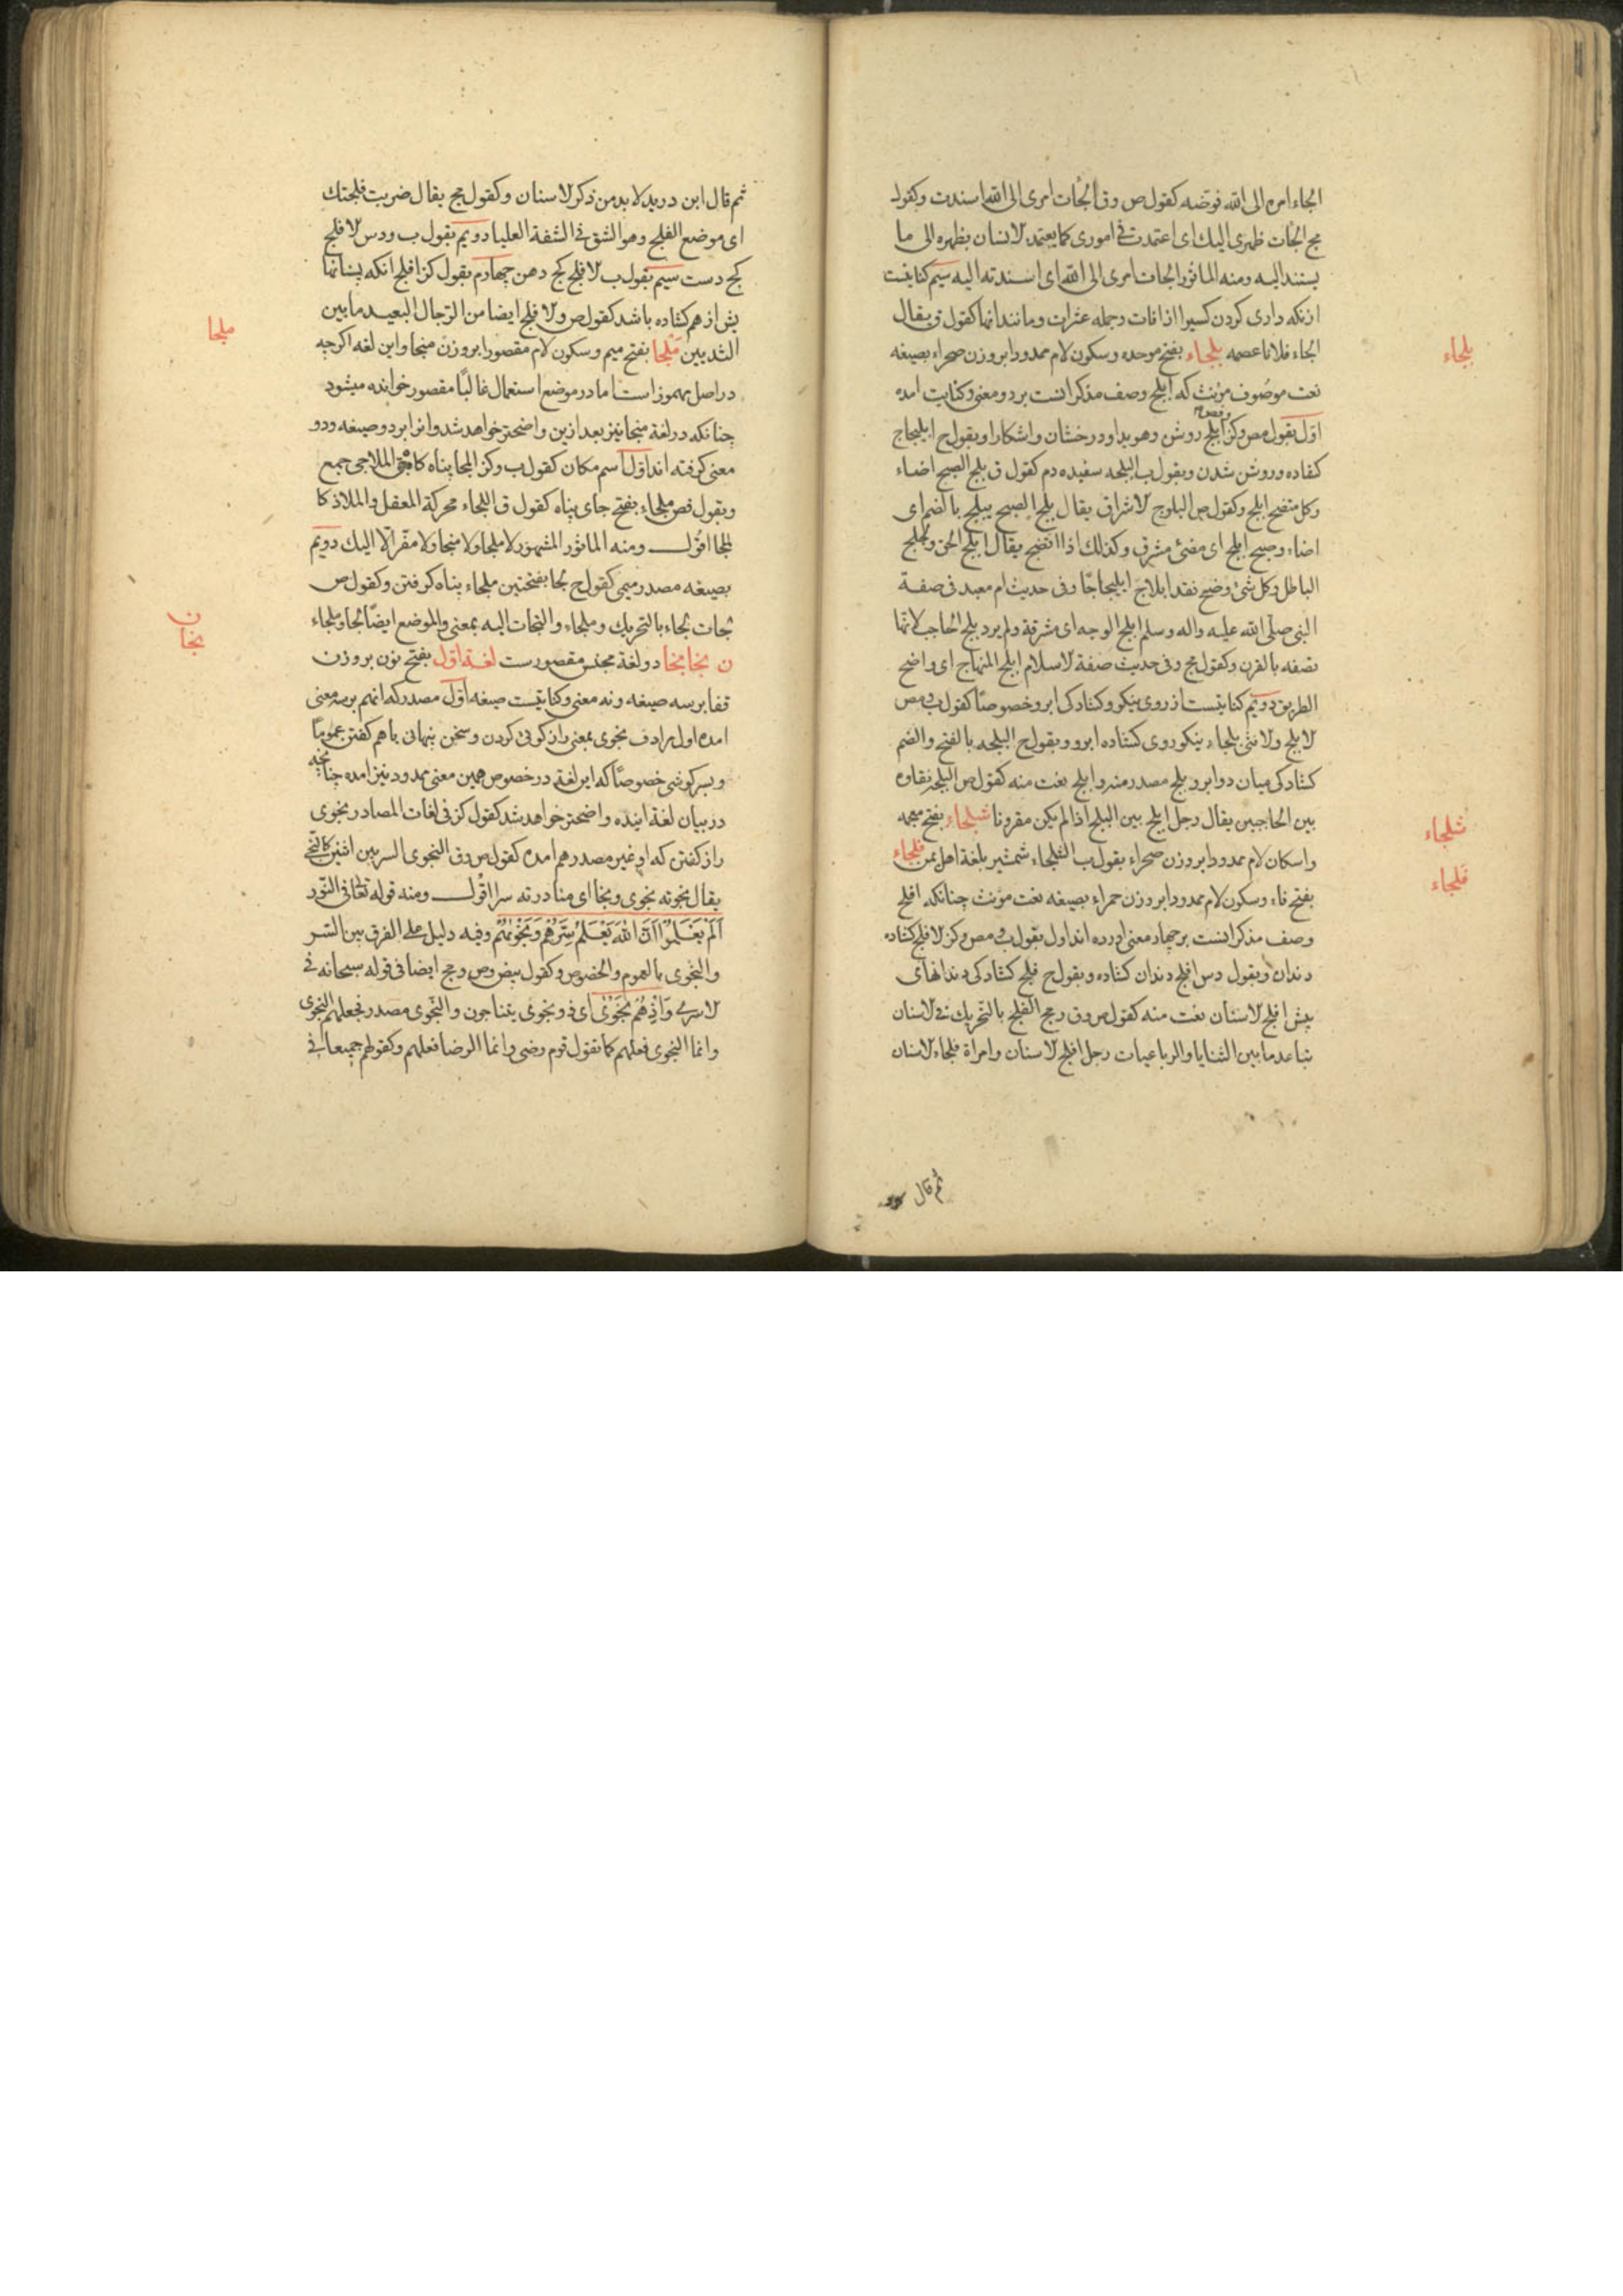 الجاء امره الی الله فوّضه کقول ص و ق الجأت امری الی الله اسندت و کقول
مج الجأت ظهری الیک ای اعتمدت فی اموری کما یعتمد الانسان بظهره الی ما
یستند الیه و منه الماثور الجات امری الی الله ای اسندته الیه سیم کنایتست
از نکه داری کردن کسیرا از افات و جمله عثرات و مانند انها کقول ق یقال
الجاء فلانا عصمه بلجاء بفتح موحده و سکون لام ممدودا بر وزن صحراء بصیغه
نعت موصوف مؤنث که ابلج وصف مذکر انست بر دو معنی و کنایت امده
اوّل بقول مص و کز ابلج روشن و هویدا و درخشان و اشکارا و بقول ح ابلیجاج
کفاده و روشن شدن و بقول ب البلجه سفیده دم کقول ق بلج الصبح اضاء
و کل متضح ابلج و کقول ص البلوج الاشراق یقال بلج الصبح یبلج بالضم ای
اضاء و صبح ابلج ای مضئ مشرق و کذلک اذا اتضح یقال ابلج الحق و لجلج
الباطل و کل شئ وضح فقد ابلاج ابلیجاجا و فی حدیث ام معبد فی صفة
النبی صلی الله علیه و اله و سلم ابلج الوجه ای مشرقة و لم یرد بلج الحاجب لانها
تصفه بالقرن و کقول مج و فی حدیث صفة الاسلام ابلج المنهاج ای واضح
الطریق دویم کنایتست از روی نیکو و کشادکی ابرو خصوصًا کقول ب و مص
الابلج و الانثی بلجاء نیکو روی کشاده ابرو و بقول ح البلجه بالفتح و الضم
کشادکی میان دو ابرو بلج مصدر منه و ابلج نعت منه کقول ص البلجه نقاوه
بین الحاجبین یقال رجل ابلج بین البلج اذا لم یکن مقرونا شلجاء بفتح معجمه
و اسکان لام ممدودا بر وزن صحراء بقول ب الشلجاء شمشیر بلغة اهل یمن فلجاء
بفتح فاء و سکون لام ممدودا بر وزن حمراء بصیغه نعت مؤنث چنانکه افلج
وصف مذکر انست بر چهار معنی اورده اند اول بقول ب و مص و کز الافلج کشاده
دندان و بقول دس افلج دندان کشاده و بقول ح فلج کشادکی دندانهای
پیش افلج الاسنان نعت منه کقول ص و ق و مج الفلج بالتحریک فی الاسنان
تباعد ما بین الثنایا و الرباعیات رجل افلج الاسنان و امراة فلجاء الاسنان
ثم قال
بلجاء
شلجاء
فلجاء
ثم قال ابن درید لا بد من ذکر الاسنان و کقول مج یقال ضربت فلجتک
ای موضع الفلج و هو الشق فی الشفة العلیا دویم بقول ب و دس الافلج
کج دست سیم بقول ب الافلج کج دهن چهارم بقول کز افلج انکه پستانها
یش از هم کشاده باشد کقول ص و الافلج ایضا من الرجال البعید ما بین
الثدیین ملجا بفتح میم و سکون لام مقصورا بر وزن منجا و این لغه اکرچه
در اصل مهموز است اما در موضع استعمال غالبًا مقصور خوانده میشود
چنانکه در لغة منجا نیز بعد ازین واضحتر خواهد شد و انرا بر دو صیغه و دو
معنی کرفته اند اوّل اسم مکان کقول ب و کز الملجا پناه کاه الملاجی جمع
و بقول فص ملجاء بفتح جای پناه کقول ق اللجاء محرکة المعقل و الملاذ کا
لملجا اقول و منه الماثور المشهور لا ملجا و لا منجا و لا مفر الا الیک دویم
بصیغه مصدر میمی کقول ح لجا بفتحتین ملجاء پناه کرفتن و کقول ص
لجات لجاء بالتحریک و ملجاء و التجات الیه بمعنی و الموضع ایضًا لجا و ملجاء
ن نجا نجا دو لغة مجنس مقصورست لغة اوّل بفتح نون بر وزن
قفا بر سه صیغه و نه معنی و کنایتست صیغه اوّل مصدر که انهم بر سه معنی
امده اول مرادف نجوی بمعنی راز کوئی کردن و سخن پنهانی با هم کفتن عمومًا
و بسر کوشی خصوصًا که این لغة در خصوص همین معنی ممدود نیز امده چنانچه
در بیان لغة اینده واضحتر خواهد شد کقول کز فی لغات المصادر نجوی
راز کفتن که او غیر مصدر هم امده کقول ص و ق النجوی السر بین اثنین کالنجی
یقال نجوته نجوی و نجا ای منادرته سرا اقول و منه قوله تعالی فی النور
اَلَمْ یَعْلَمُوا اَنَّ اللهَ یَعْلَمُ سِرَّهُمْ وَ نَجْوٰیهُمْ و فیه دلیل علی الفرق بین السر
و النجوی بالعموم و الخصوص و کقول بیض و ص و مج ایضا فی قوله سبحانه فی
الاسری وَ اِذْ هُمْ نَجْوٰی ای ذو نجوی یتناجون و النجوی مصدر فجعلهم النجوی
و انما النجوی فعلهم کما تقول قوم رضی و انما الرضا فعلهم و کقولهم جمیعا فی
ملجا
ن
نجا